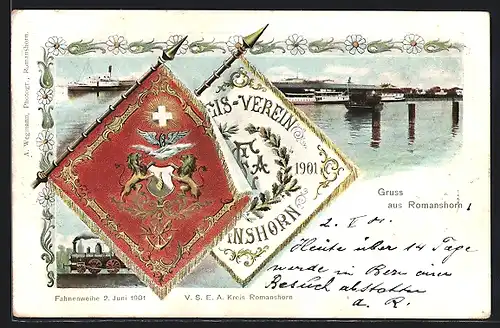 A. Wegmann, Photogr., Romanshorn.
EIS-VEREIN
EA
1901
ENSHORN
Gruss
aus Romanshorn!
2. V 01.
Heute über 14 Tage
werde in Bern einen
Besuch abstatten
a. R.
Fahnenweihe 2. Juni 1901
V. S. E. A. Kreis Romanshorn